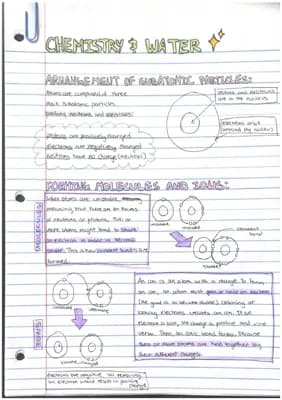 CHEMISTRY & WATER
ARRANGEMENT OF SUBATOMIC PARTICLES:
Atoms are composed of three
main subatomic particles
protons, neutrons and electrons!
protons and
are in the nucleus
electrons orbit
around the nucleus
protons are positively charged
electrons are negatively charged
neutrons have no charge (neutral)
FORMING MOLECULES AND IONS:
When atoms are unstable,
meaning that there are
of neutrons or protons, two or
more atoms might tend to share
an electron in order to become
stable. This is how covalent bonds are
formed.
covalent
bond
An ion is an atom with a charge. To form
an ion, an atom must gain or lose an electron
(the goal is to become stable). Gaining or
loosing electrons creates an ion. If an
electron is lost, the charge is positive and vice
versa. Then, an ionic bond forms, because
two or more atoms are held together by
their different charges.
electrons are negative, so removing
an electron would result in positive
charge